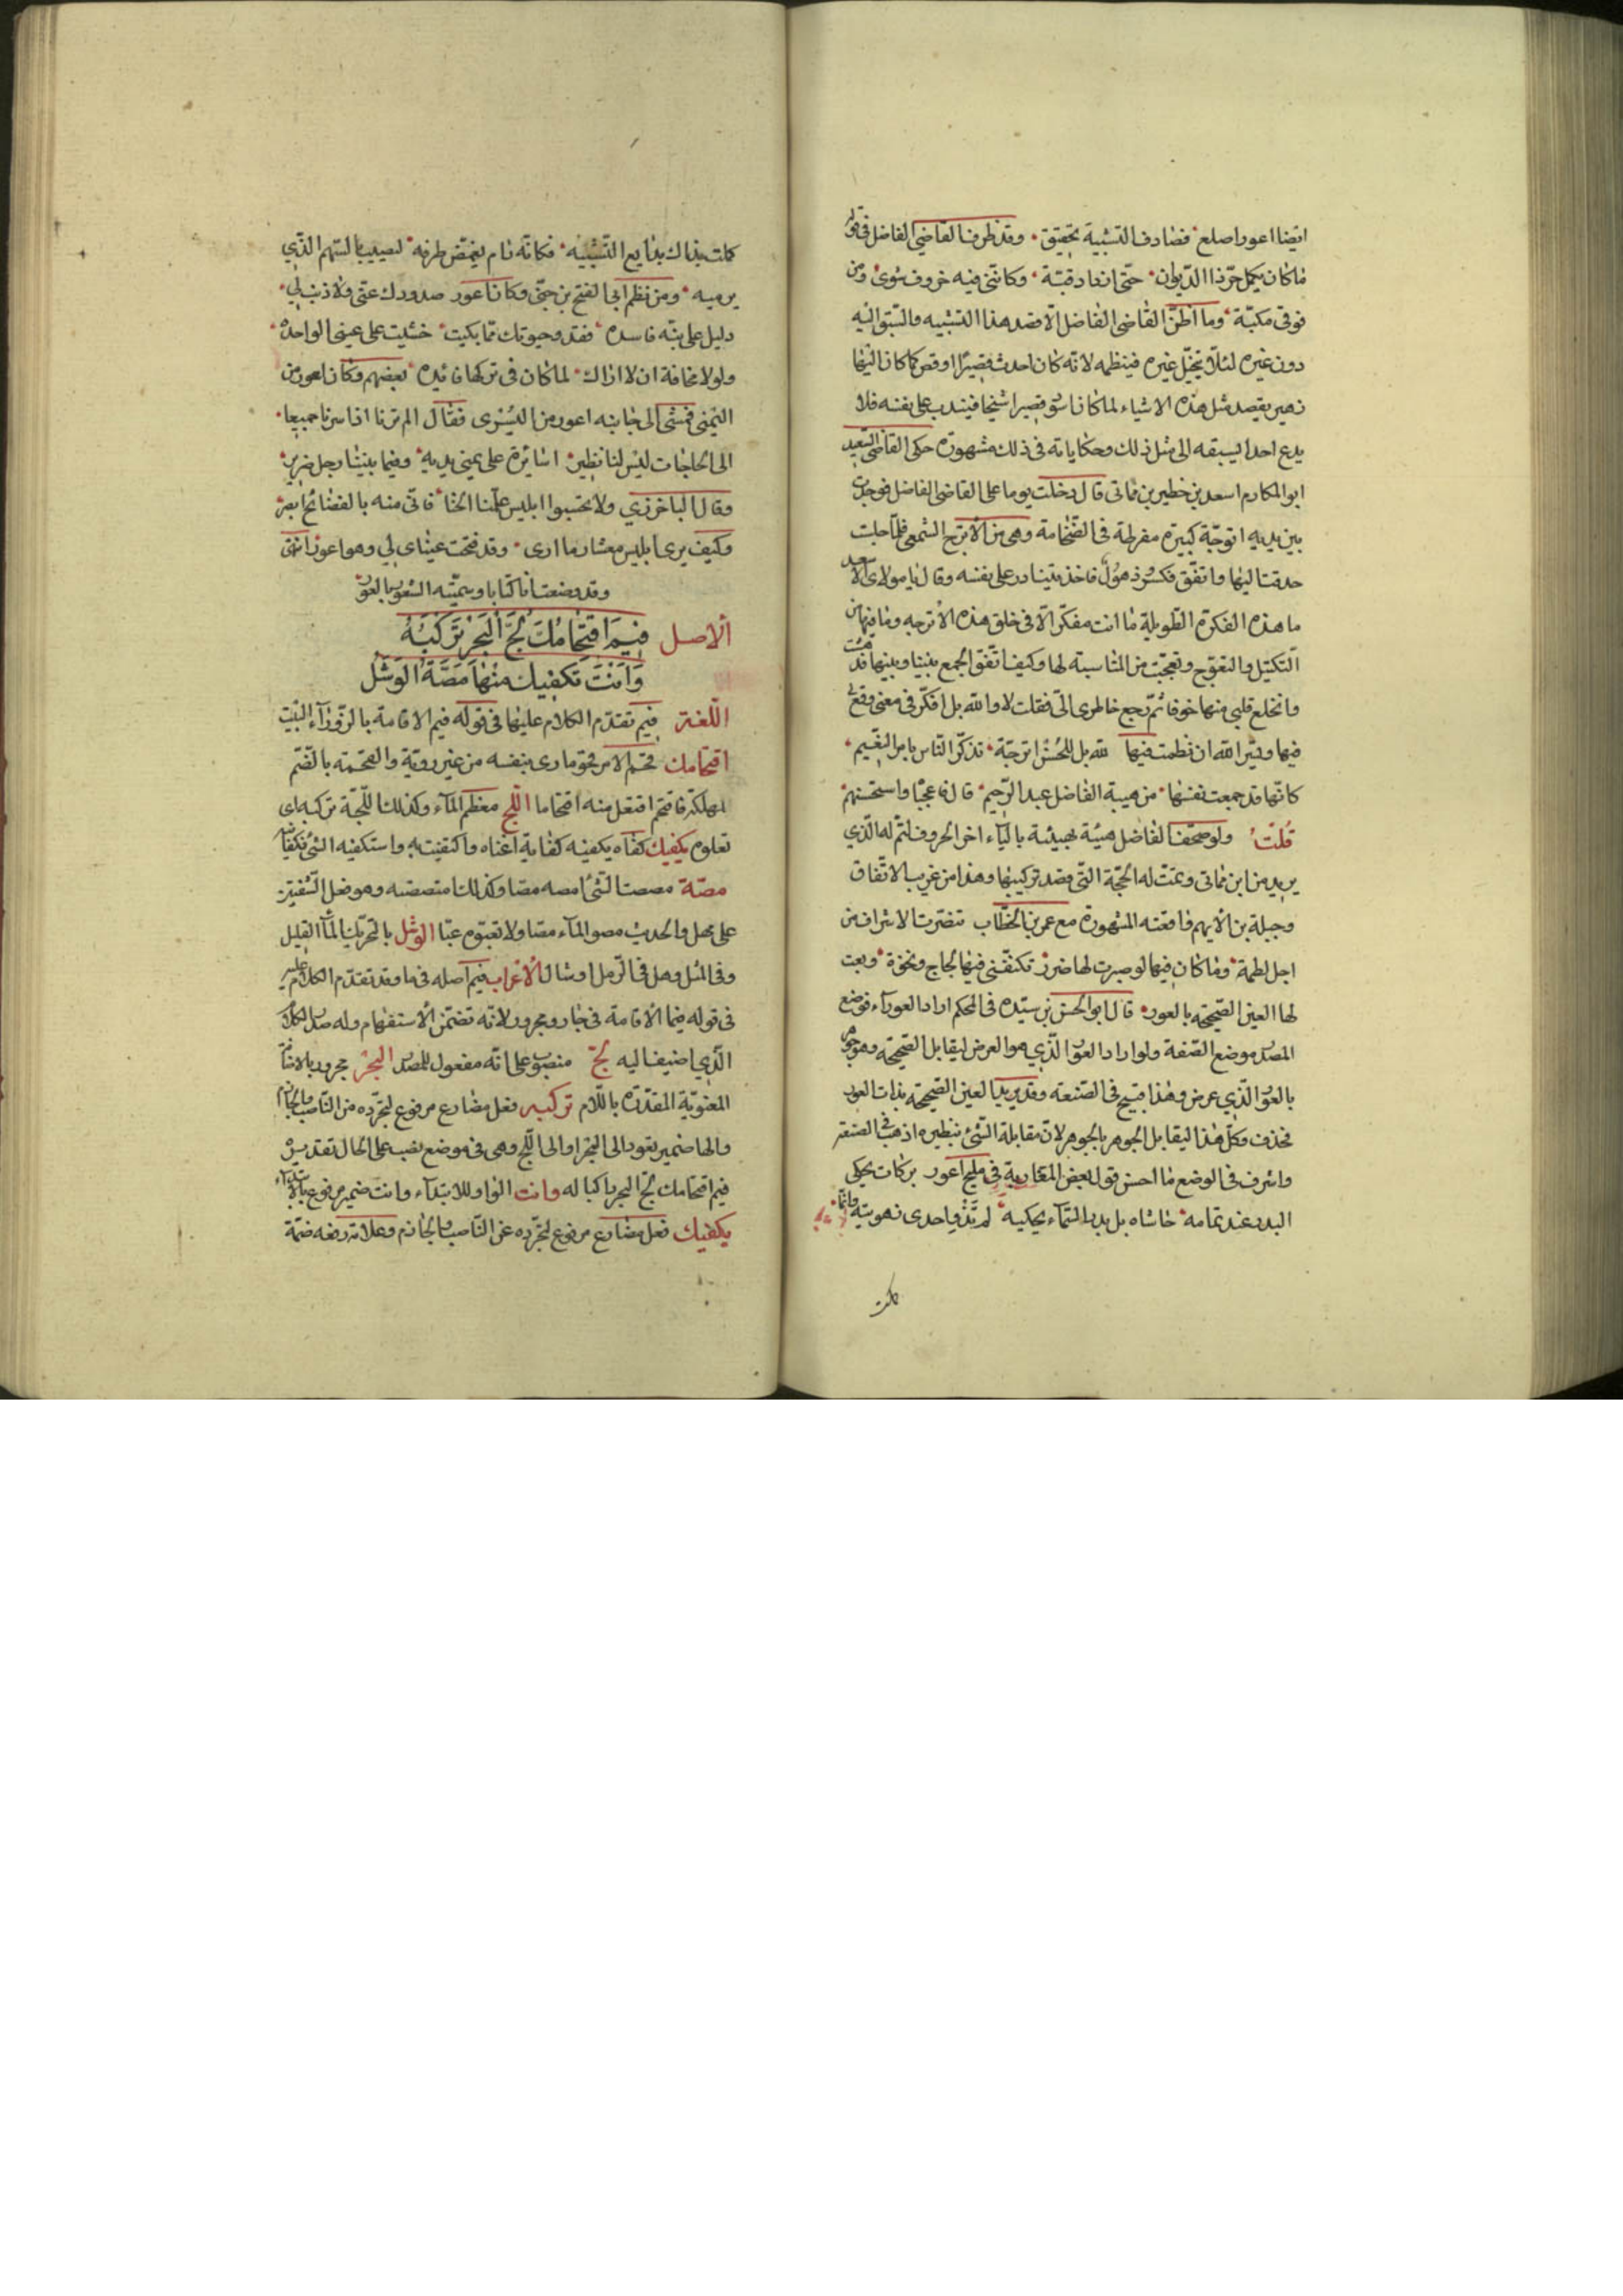 ايضا اعور اصلع فصادف التشبيه تحقيق وقد ظرف القاضي الفاضل في قوله
ما كان يكمل حر ذا الديوان حتى انعاد قبة وكانني فيه خروف شوى ومن
فوقي مكبة وما اظن القاضي الفاضل الا قصد هذا التشبيه والسبق اليه
دون غيره لئلا يتخيل غيره فينظمه لانه كان احدب قصيرا اوقص كما كان البها
زهير يقصد مثل هذه الاشياء لما كان اسود قصيرا شيخا فيندب على نفسه فلا
يدع احدا يسبقه الى مثل ذلك وحكاياته في ذلك مشهورة حكى القاضي السعيد
ابو المكارم اسعد بن خطير بن مماتي قال دخلت يوما على القاضي الفاضل فوجدت
بين يديه اترجة كبيرة مفرطة في الضخامة وهي من الاترج الشمعي فلما جلست
حدقت اليها واتفق فكر وذهول فاخذ يتنادر على نفسه وقال يا مولاى الاسعد
ما هذه الفكرة الطويلة ما انت مفكر الا في خلق هذه الاترجه وما فيها من
التكتيل والتعوج وتعجبت من المناسبة لها وكيف اتفق الجمع بيننا وبينها فدهشت
وانخلع قلبي منها خوفا ثم رجع خاطرى الي فقلت لا والله بل افكر في معنى وقع
فيها ويسر الله ان نظمت فيها لله بل للحسن اترجة تذكر الناس بامر النعيم
كانها قد جمعت نفسها من هيبة الفاضل عبد الرحيم قال فاعجبا واستحسنهم
قلت ولو صحف الفاضل هيئة بهيبة بالياء اخر الحروف لتم له الذي
يريد من ابن مماتي وتمت له الحجة التي قصد تركيبها وهذا من غريب الاتفاق
وجبلة بن الايهم واقعته المشهورة مع عمر بن الخطاب تنصرت الاشراف من
اجل لطمة وما كان فيها لو صبرت لها ضرر تكنفني فيها لجاج ونخوة وبعت
لها العين الصحيحة بالعور قال ابو الحسن بن سيده في المحكم اراد العوراء فوضع
المصدر موضع الصفة ولو اراد العور الذي هو العرض ليقابل الصحيحة وهو جوهر
بالعور الذي عرض وهذا قبيح في الصنعة وقد يريد العين الصحيحة بذات العور
فحذف وكل هذا ليقابل الجوهر بالجوهر لان مقابلة الشئ بنظيره اذهب في الصنعة
واشرف في الوضع ما احسن قول بعض المغاربة في مليح اعور بركات يحكى
البدر عند تمامه حاشاه بل بدر السماء يحكيه لم تذو احدى زهرتيه وانما
كملت
كملت بذاك بدايع التشبيه فكانه رام يغمض طرفه ليصيب بالسهم الذي
يرميه ومن نظم ابي الفتح بن جني وكان اعور صدودك عني ولا ذنب لي
دليل على نية فاسده فقد وحيوتك مما بكيت خشيت على عيني الواحده
ولولا مخافة ان لا اراك لما كان في تركها فائده بعضهم وكان اعور من
اليمنى فمشى الى جانبه اعور من اليسرى فقال الم ترنا اذا سرنا جميعا
الى الحاجات ليس لنا نظير اسايره على يمنى يديه وفيما بيننا رجل ضرير
وقال الباخرزي ولا تحسبوا ابليس علمنا الخنا فانى منه بالفضائح ابصر
وكيف يرى ابليس معشار ما ارى وقد فتحت عيناى لي وهو اعور انتهى
وقد وضعت انا كتابا وسميته الشعور بالعور
الاصل فيم اقتحامك لج البحر تركبه
وانت تكفيك منها مصة الوشل
اللغة فيم تقدم الكلام عليها في قوله فيم الاقامة بالزوراء البيت
اقتحامك قحم الامر قحوما رمى بنفسه من غير روية والقحمة بالضم
المهلكة فاقتحم افتعل منه اقتحاما اللج معظم الماء وكذلك اللجة تركبه اى
تعلوه يكفيك كفاه يكفيه كفاية اغناه واكتفيت به واستكفيه الشئ فكفانيه
مصة مصصت الشئ امصه مصا وكذلك امتصصته وهو فعل الشفتين
على مهل والحديث مصوا الماء مصا ولا تعبوه عبا الوشل بالتحريك الماء القليل
وفي المثل وهل في الرمل اوشال الاعراب فيم اصله في ما وقد تقدم الكلام عليه
في قوله فيما الاقامة في جار ومجرور لانه تضمن الاستفهام وله صدر الكلام
الذي اضيف اليه لج منصوب على انه مفعول للمصدر البحر مجرور بالاضافة
المعنوية المقدرة باللام تركبه فعل مضارع مرفوع لتجرده من الناصب والجازم
والها ضمير يعود الى البحر او الى اللج وهي في موضع نصب على الحال تقديره
فيم اقتحامك لج البحر راكبا له وانت الواو للابتداء وانت ضمير مرفوع بالابتداء
يكفيك فعل مضارع مرفوع لتجرده عن الناصب والجازم وعلامة رفعه ضمة